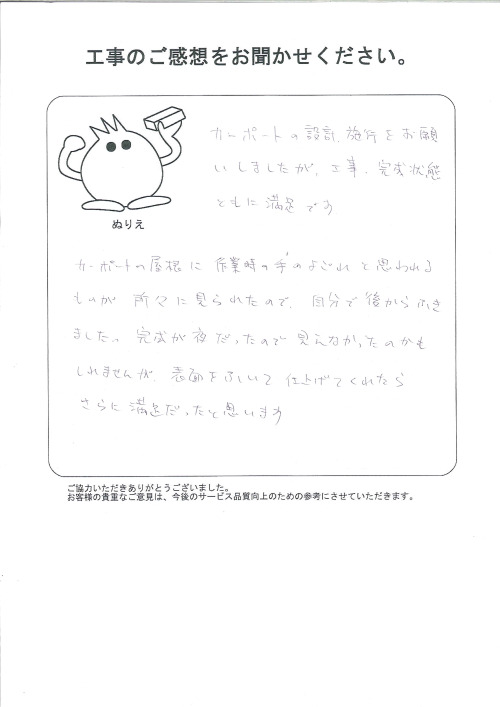 工事のご感想をお聞かせください。
カーポートの設計、施行をお願
いしましたが、工事、完成状態
ともに満足です
ぬりえ
カーポートの屋根に作業時の手のよごれと思われる
ものが所々に見られたので、自分で後からふき
ました。完成が夜だったので見えなかったのかも
しれませんが、表面をふいて仕上げてくれたら
さらに満足だったと思います
ご協力いただきありがとうございました。
お客様の貴重なご意見は、今後のサービス品質向上のための参考にさせていただきます。